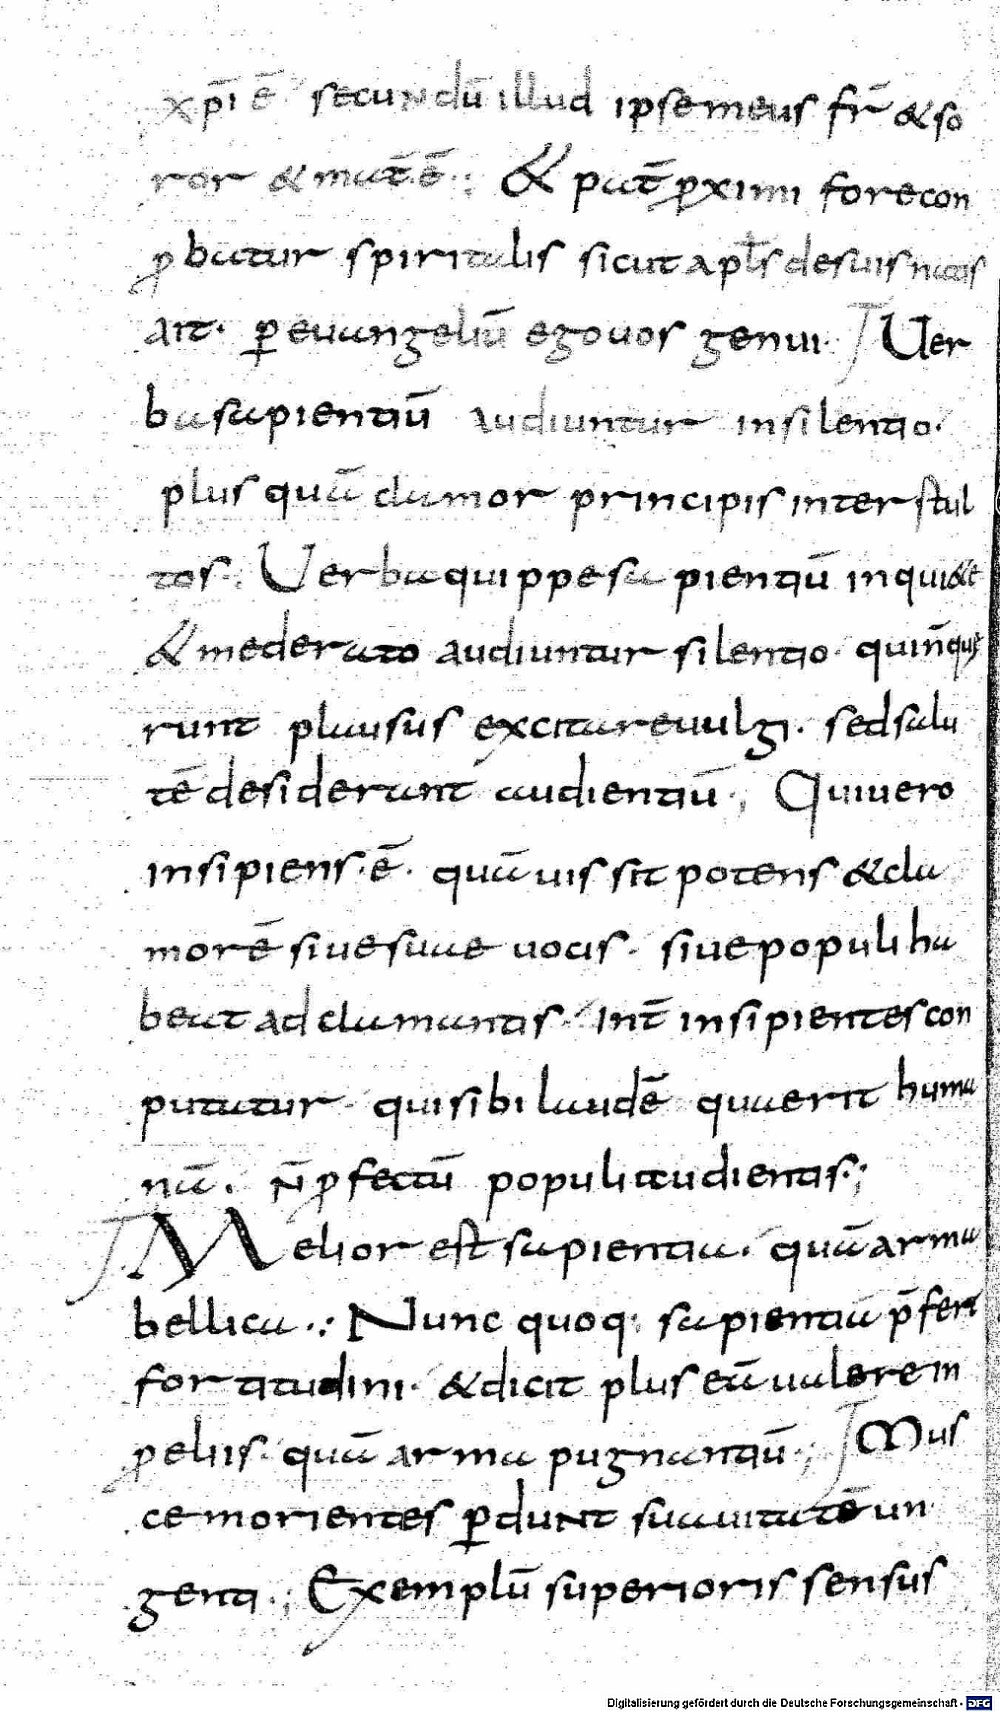 xp̄i ē secundū illud ipse meus fr̄ & so
ror & mat̄ ē·; & pat̄ proximi fore con
probatur spiritalis sicut apl̄s de suis natis
ait· per euangeliū ego uos genui· Uer
ba sapientiū audiuntur in silentio·
plus quā clamor principis inter stul
tos·; Uerba quippe sapientiū in quiete
& mederato audiuntur silentio· qui n̄ que
runt plausus excitare uulgi· sed salu
tē desiderant audientiū·; Qui uero
insipiens· ē· quāuis sit potens & cla
morē siue suae uocis· siue populi ha
beat adclamantis· int̄ insipientes con
putatur· qui sibi laudē quaerit huma
nā· n̄ profectū populi audientis·;
Melior est sapientia· quā arma
bellica·:· Nunc quoq; sapientiā p̄fert
fortitudini· & dicit plus eā ualere in
proeliis· quā arma pugnantiū·; Mus
ce morientes perdunt suauitatē un
genti·; Exemplū superioris sensus
Digitalisierung gefördert durch die Deutsche Forschungsgemeinschaft - DFG